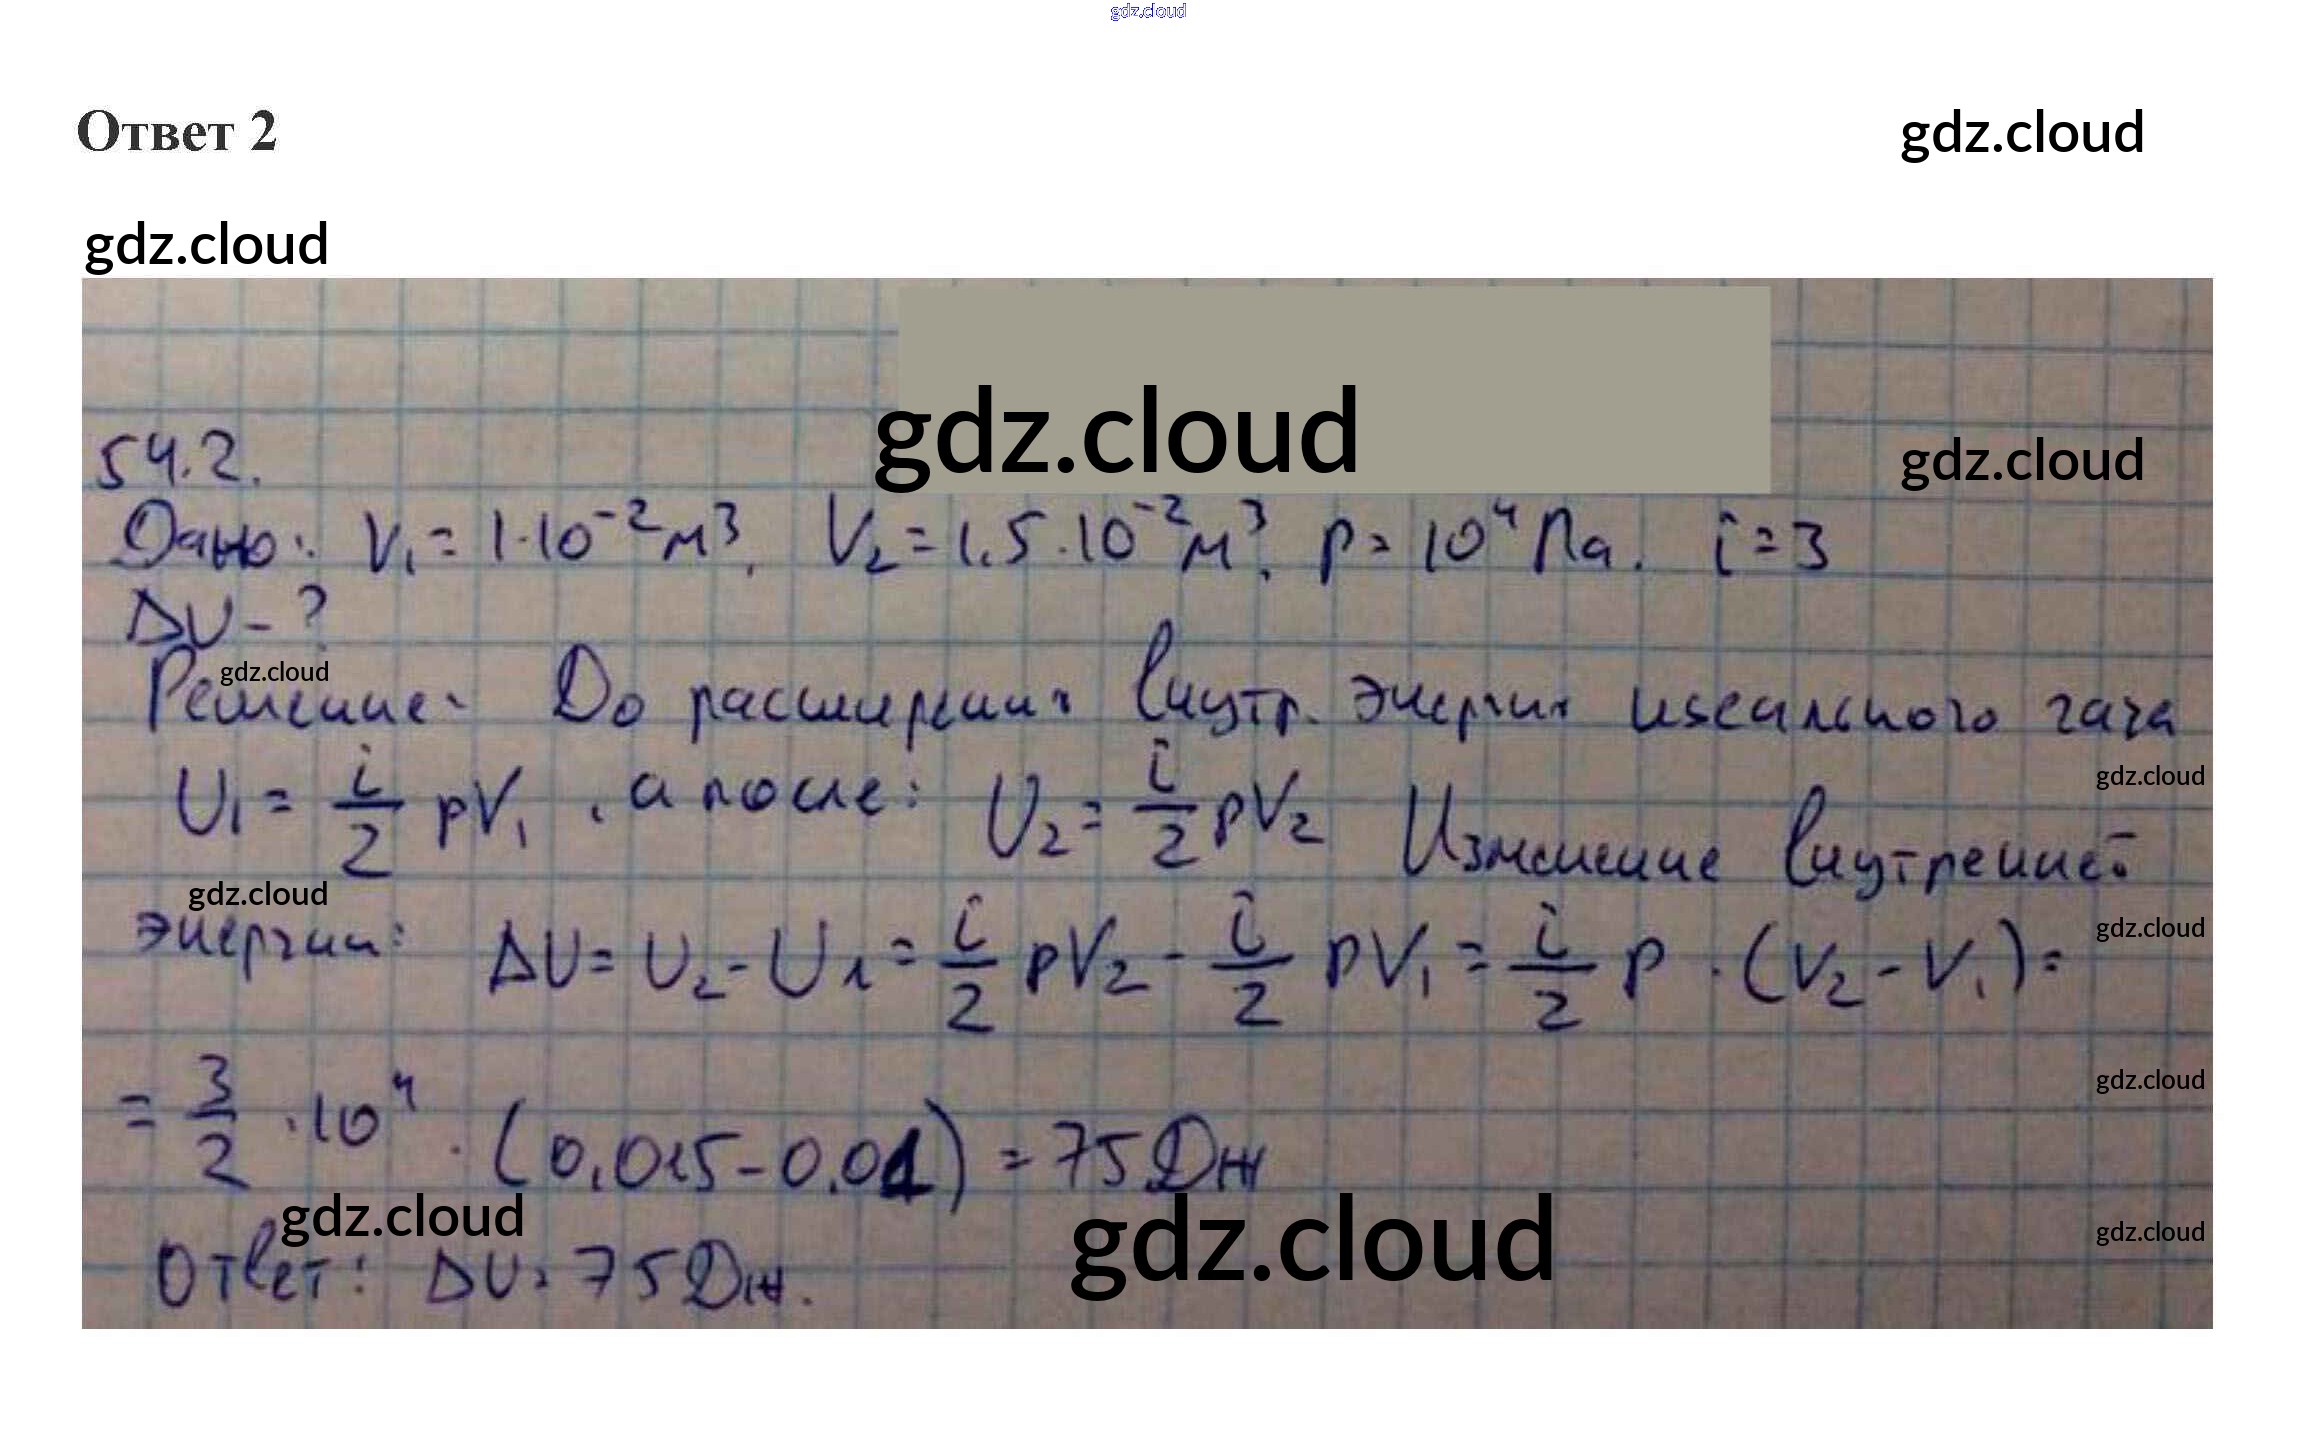 gdz.cloud
Ответ 2 gdz.cloud
gdz.cloud
gdz.cloud
54.2. gdz.cloud
Дано: V₁ = 1·10⁻² м³, V₂ = 1,5·10⁻² м³, p = 10⁴ Па. i = 3
ΔU - ?
gdz.cloud
Решение: До расширения внутр. энергия идеального газа
U₁ = i/2 pV₁, а после: U₂ = i/2 pV₂ Изменение внутренней
gdz.cloud
gdz.cloud
энергии: ΔU = U₂ - U₁ = i/2 pV₂ - i/2 pV₁ = i/2 p · (V₂ - V₁) =
gdz.cloud
gdz.cloud
= 3/2 · 10⁴ · (0,015 - 0,01) = 75 Дж
gdz.cloud gdz.cloud gdz.cloud
Ответ: ΔU = 75 Дж.